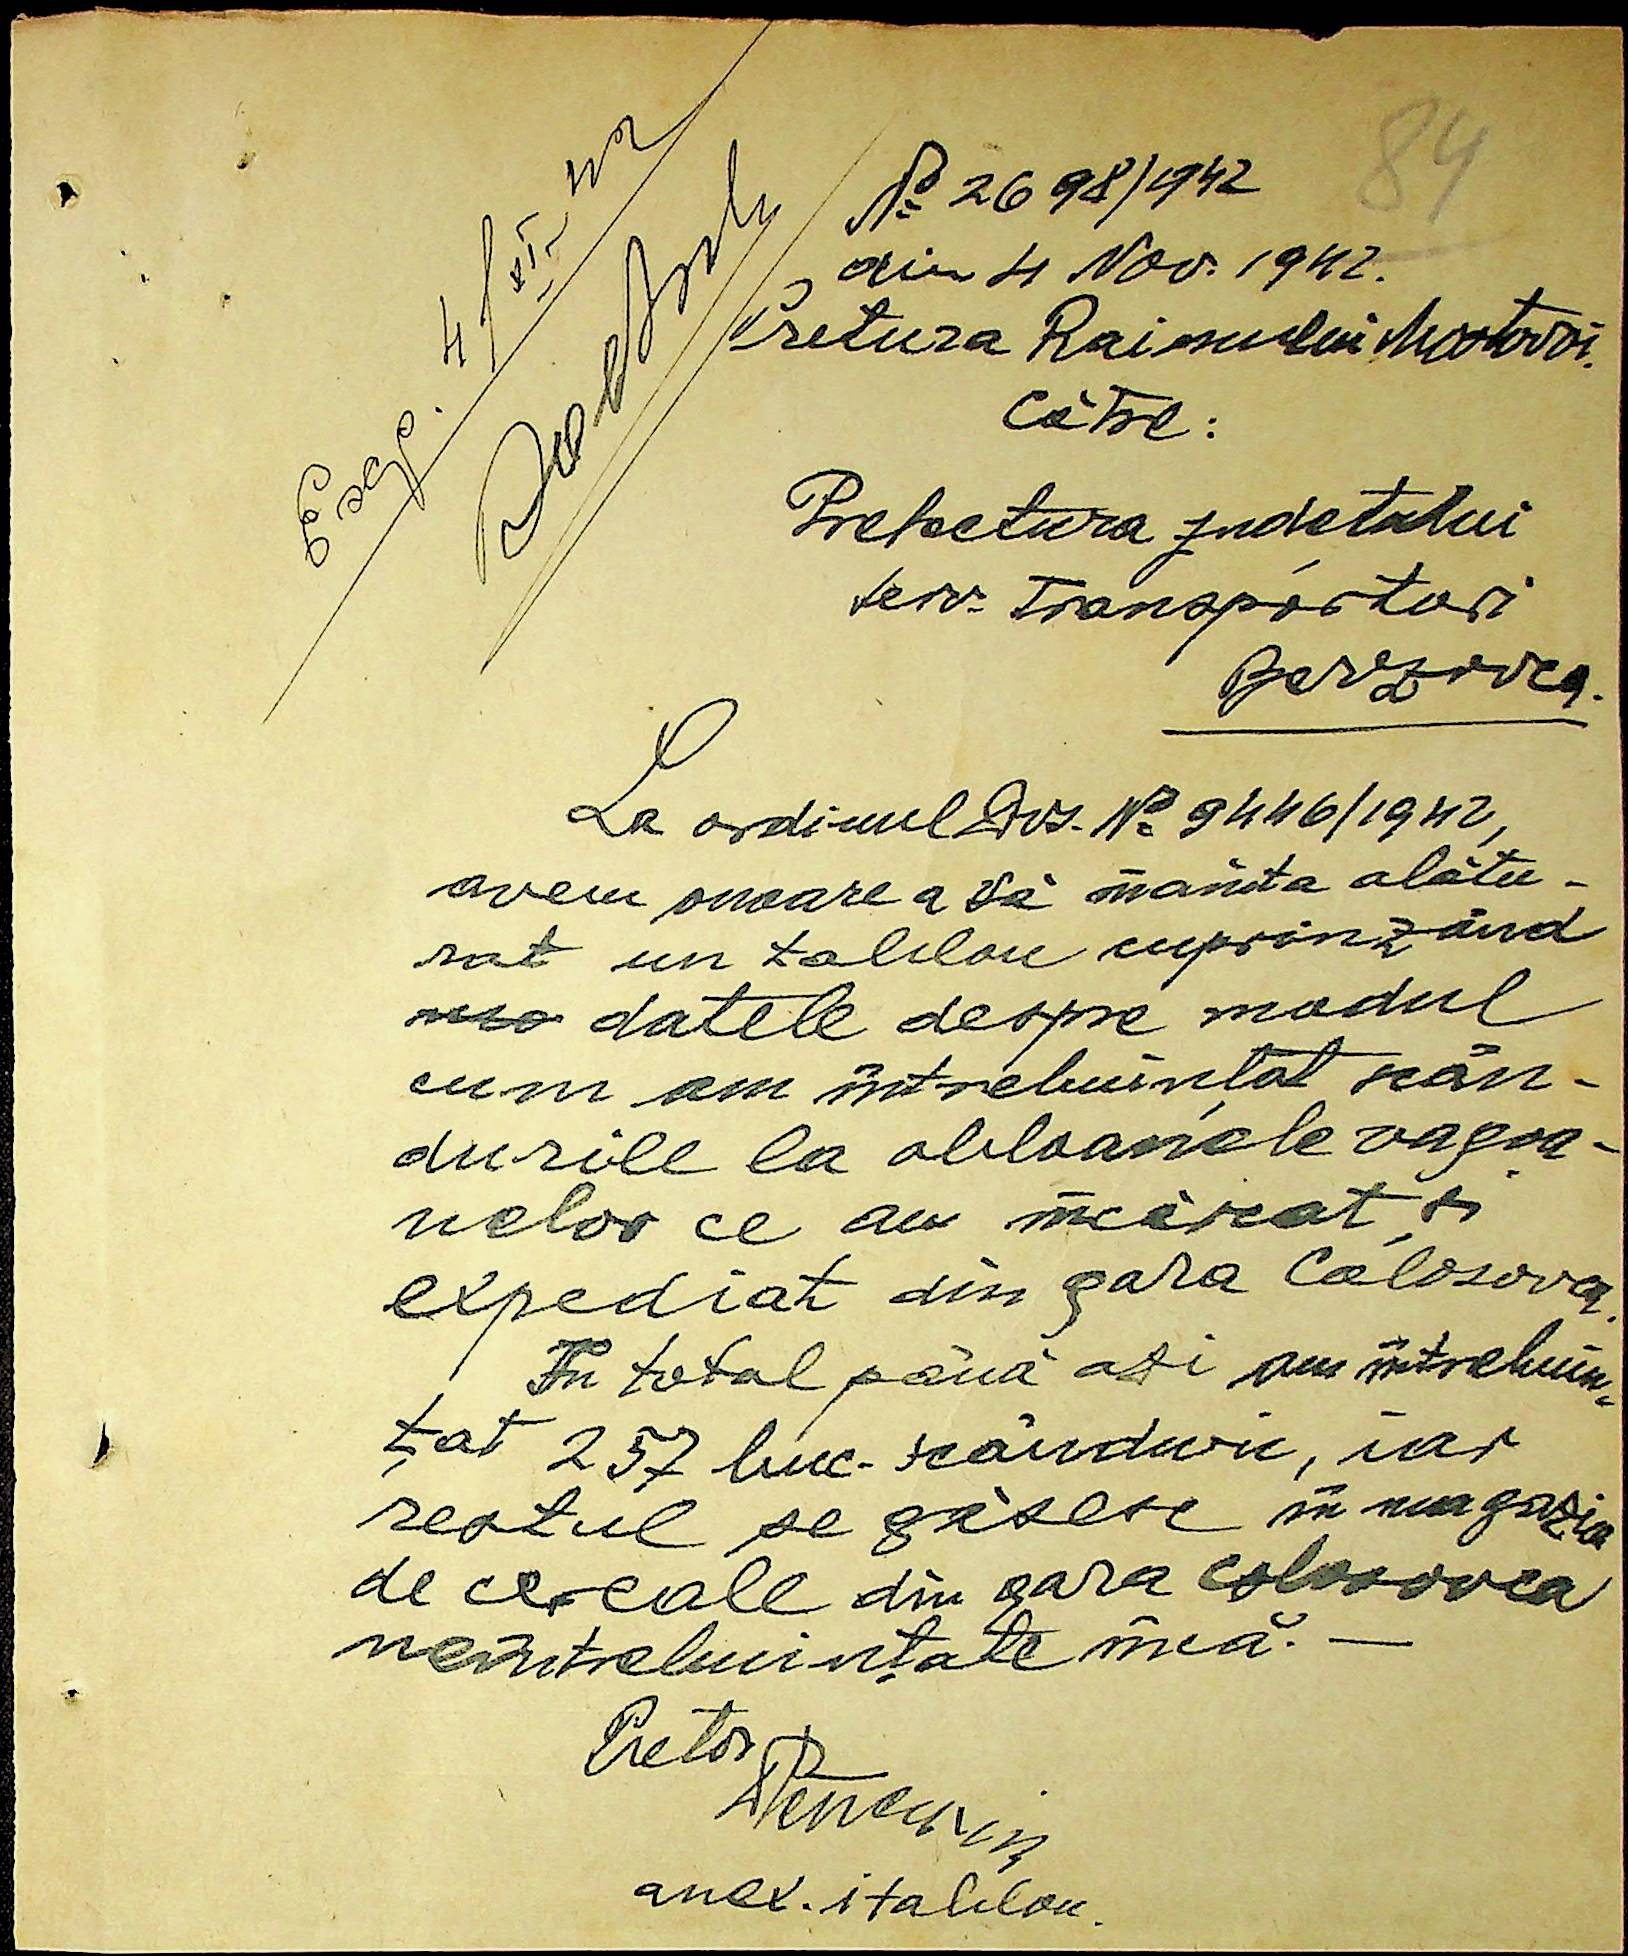 84
Exp. 4/XI 42
№ 2698/1942
din 4 Nov. 1942.
Pretura Raionului Mostovoi.
Către:
Prefectura județului
serv. Transporturi
Berezovca.
La ordinul Dvs. № 9446/1942,
avem onoare a vă înainta alătu-
rat un tablou cuprinzând
datele despre modul
cum am întrebuințat scân-
durile la obloanele vagoa-
nelor ce au încărcat și
expediat din gara Colosova.
În total până azi am întrebuin-
țat 257 buc. scânduri, iar
restul se găsesc în magazia
de cereale din gara Colosovca
neîntrebuințate încă. —
Pretor
anex. 1 tablou.